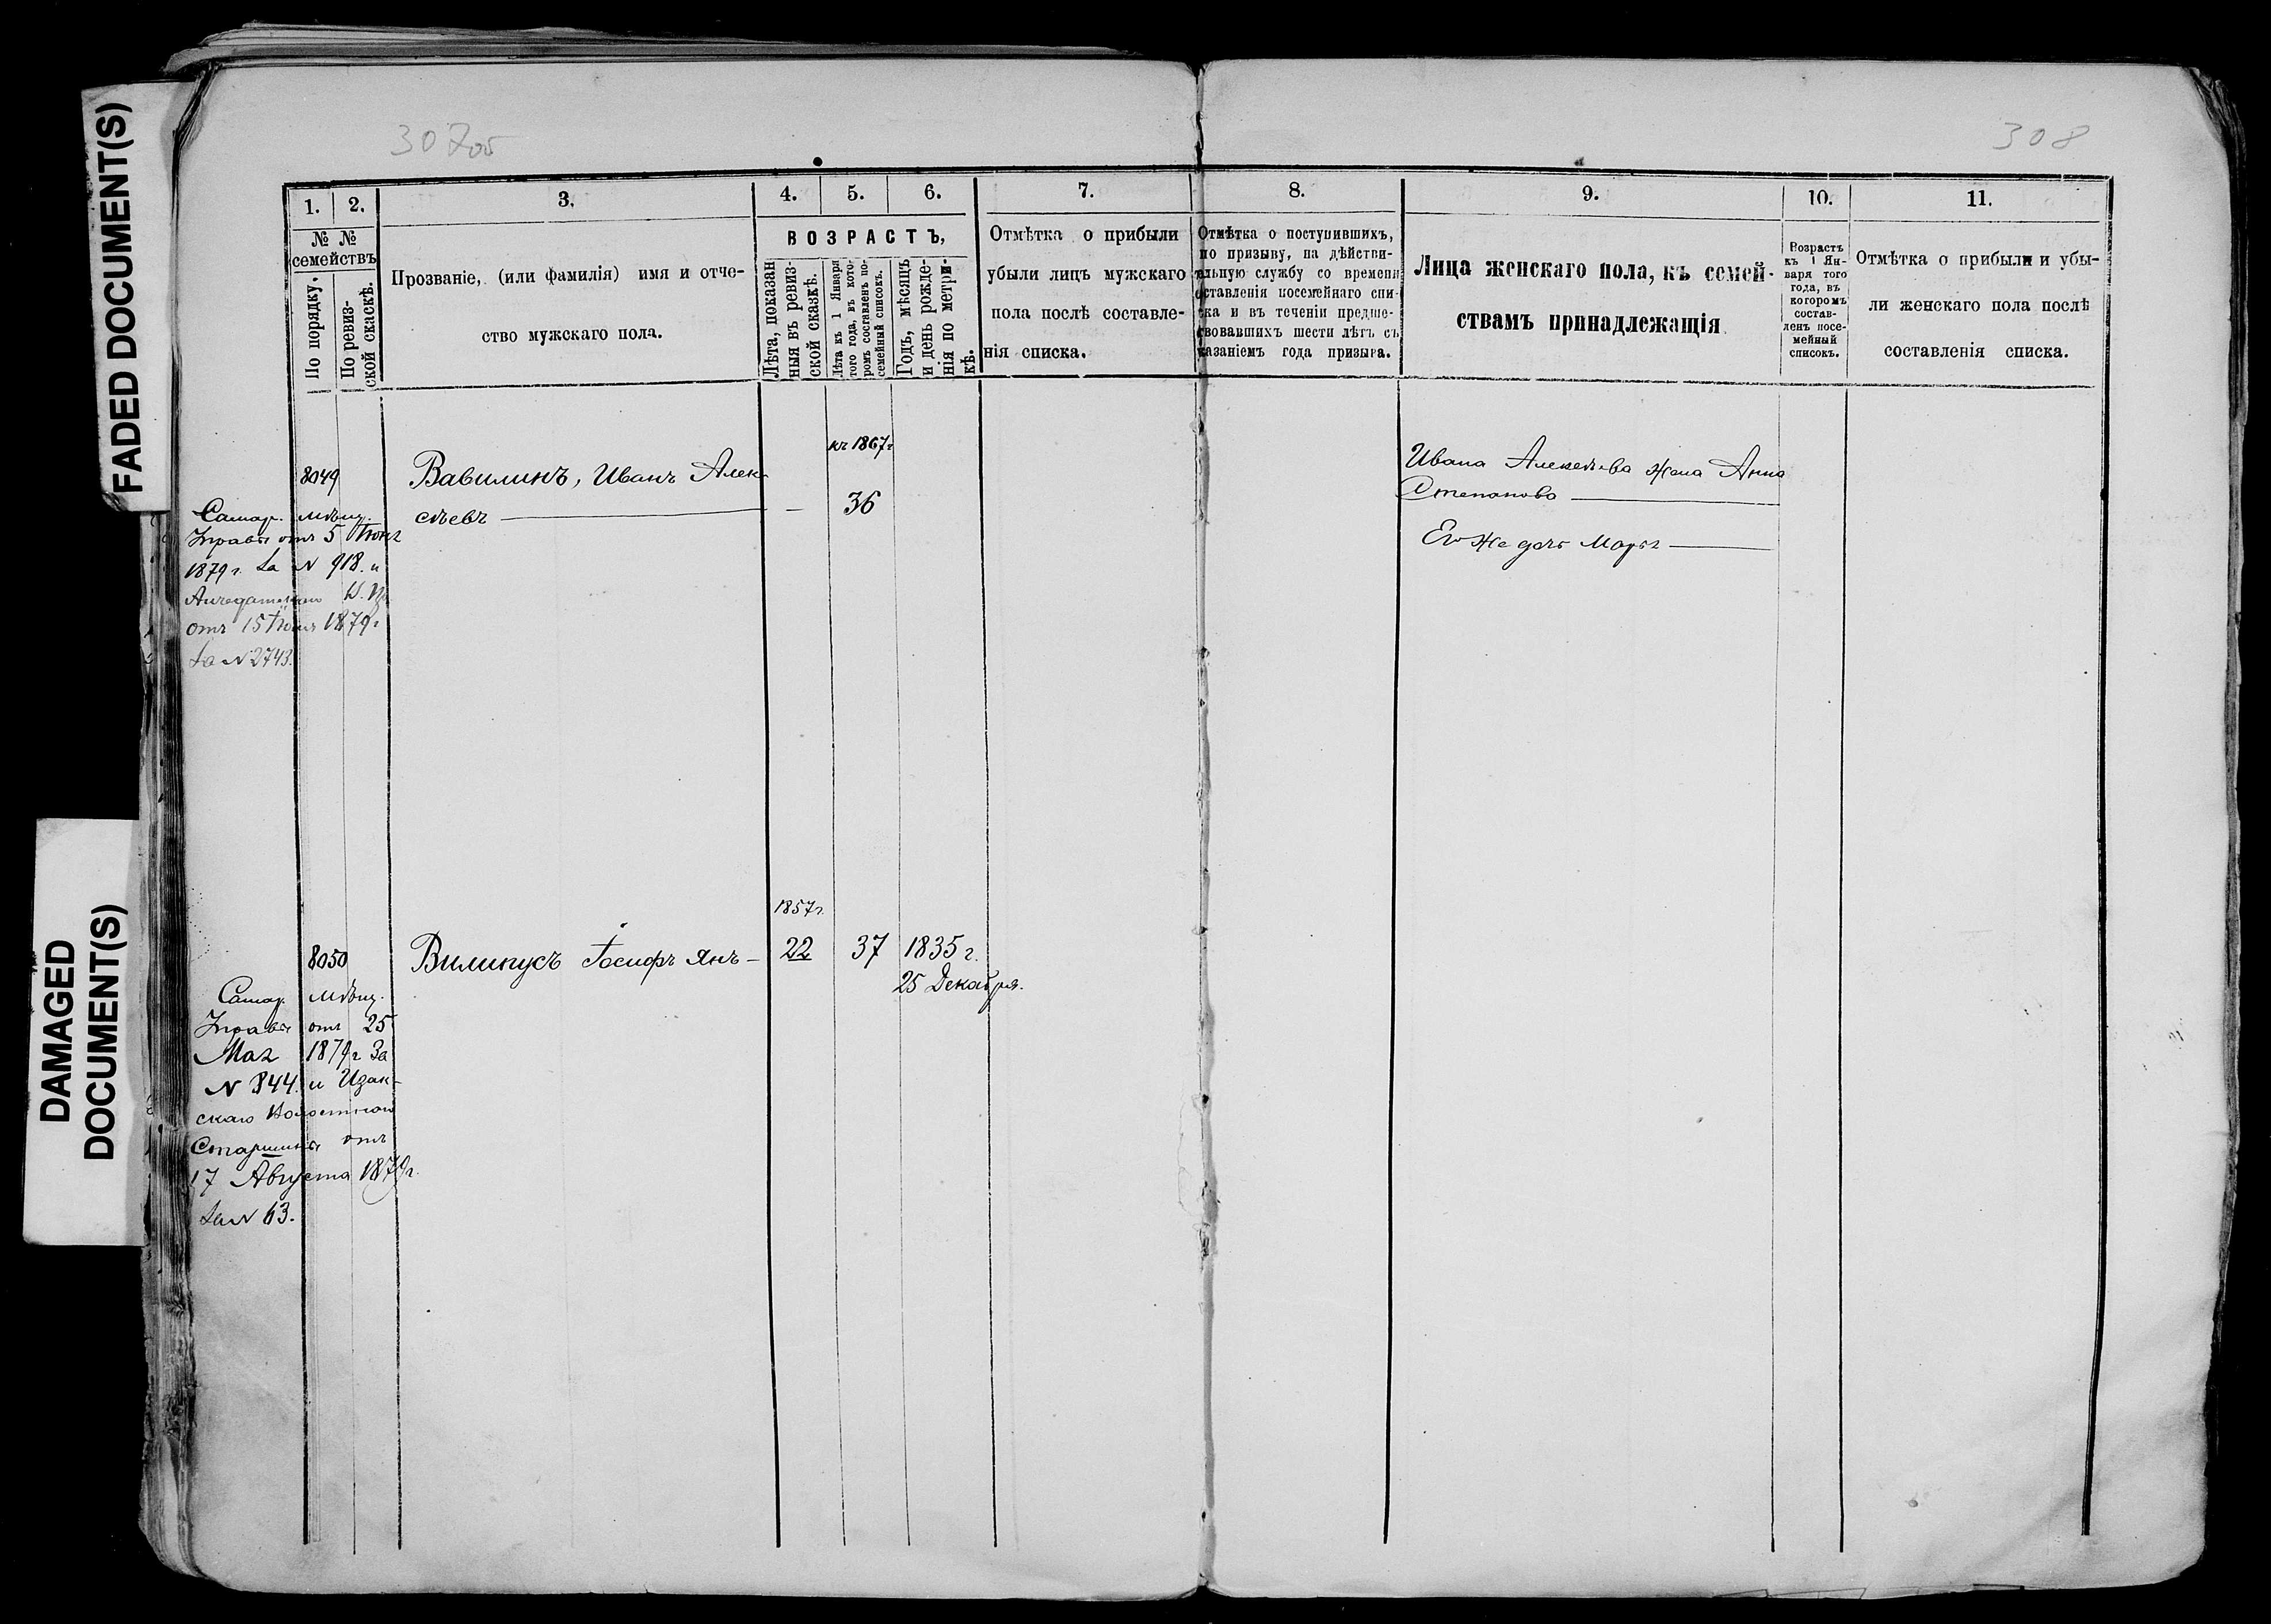 FADED DOCUMENT(S)
DAMAGED
DOCUMENT(S)
307об
308
1.
2.
3.
4.
5.
6.
7.
8.
9.
10.
11.
№ №
семействъ
По порядку.
По ревиз-
ской скаскѣ.
Прозваніе, (или фамилія) имя и отче-
ство мужскаго пола.
ВОЗРАСТЪ,
Лѣта, показан
ныя въ ревиз-
ской сказкѣ.
Лѣта къ 1 Января
того года, въ кото-
ромъ составленъ по-
семейный списокъ.
Годъ, мѣсяцъ
и день рожде-
нія по метри-
кѣ.
Отмѣтка о прибыли
убыли лицъ мужскаго
пола послѣ составле-
нія списка.
Отмѣтка о поступившихъ,
по призыву, на дѣйстви-
ельную службу со времени
оставленія посемейнаго спи-
ска и въ теченіи предше-
твовавшихъ шести лѣтъ съ
казаніемъ года призыва.
Лица женскаго пола, къ семей-
ствамъ принадлежащія
Возрастъ
къ 1 Ян-
варя того
года, въ
которомъ
состав-
ленъ посе-
мейный
списокъ.
Отмѣтка о прибыли и убы-
ли женскаго пола послѣ
составленія списка.
къ 1867г
8049
Вавилинъ, Иванъ Алек-
сѣевъ — — 36
Ивана Алексѣева жена Анна
Степанова —
Его же дочь Марья —
Самар. мѣщ.
Управы отъ 5 Июня
1879 г. За N 918. и
отъ 15 Июня 1879г
За N 2743.
1857г.
8050
Вилинусъ Іосифъ Янъ — 22 37 1835 г.
25 Декабря.
Самар. мѣщ.
Управы отъ 25
Мая 1879г За
N 844. и Изак-
скаго Волостнаго
Старшины отъ
17 Августа 1879г.
За N 63.